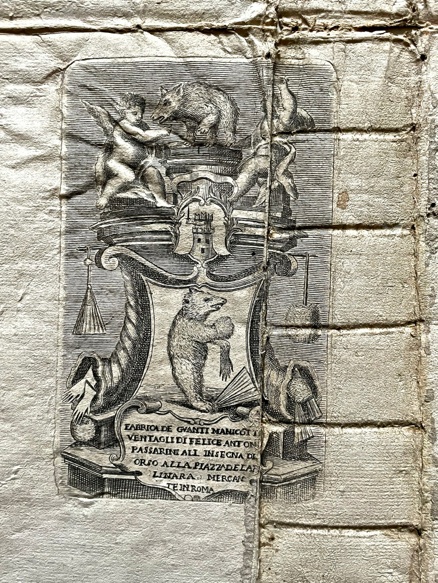 FABRICA DE GVANTI MANICOTTI
VENTAGLI DI FELICE ANTON
PASSARINI ALL INSEGNA DE
ORSO ALLA PIAZZA DELLA
MERCAN
TE IN ROMA